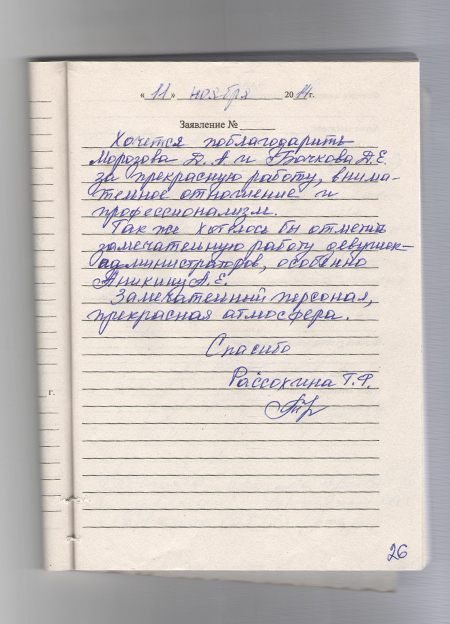 « 11 » ноября 2014г.
Заявление №
Хочется поблагодарить
Морозова Д. А и Бочкова Д.Е.
за прекрасную работу, внима-
тельное отношение и
профессионализм.
Так же хотелось бы отметить
замечательную работу девушек-
администраторов, особенно
Аникину А. Е.
Замечательный персонал,
прекрасная атмосфера.
Спасибо
Рассохина Т.Ф.
г.
26